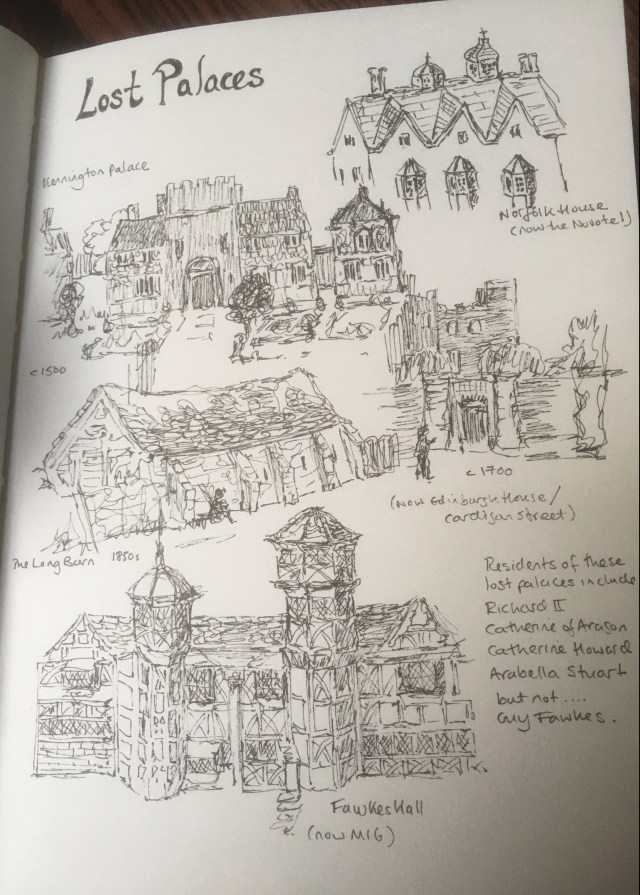 Lost Palaces
Kennington Palace
Norfolk House
(now the Novotel)
c1500
c1700
(now Edinburgh House/
Cardigan Street)
The Long Barn 1850s
Residents of these
lost palaces include
Richard II
Catherine of Aragon
Catherine Howard
Arabella Stuart
but not....
Guy Fawkes.
Fawkes Hall
(now MI6)